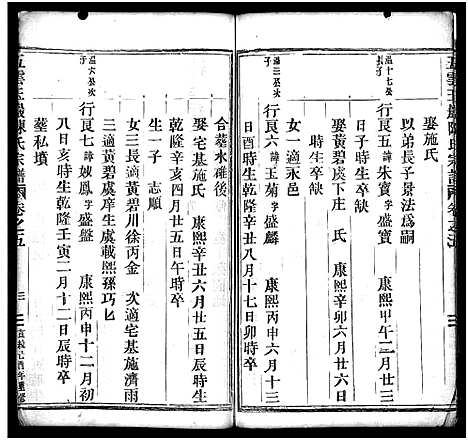 五雲玉巖陳氏宗譜
娶施氏
溫十七公次子
以弟長子景法為嗣
行良五 諱朱寶 字盛寶 康熙甲午二月廿三
日子時生卒缺
娶黃碧虞下庄 氏 康熙辛丑六月廿六日
時生卒缺
次適永邑
溫六公次子
行良六 諱王菊 字盛麟 康熙丙申六月十三
日酉時生乾隆辛丑八月十七日卯時卒
合葬水碓後
娶宅基施氏 康熙辛丑六月廿五日辰時生
乾隆辛亥四月廿五日午時卒
生一子 志順
女三長適黃碧川徐丙金 次適宅基施濟雨
三適黃碧虞庠生虞載熙孫巧匕
溫六公三子
行良七 諱妙鳳 字盛盤 康熙丙申十二月初
八日亥時生乾隆壬寅二月十二日辰時卒
墓私墳
五雲玉巖陳氏宗譜 卷之五
三
宣統己酉年重修